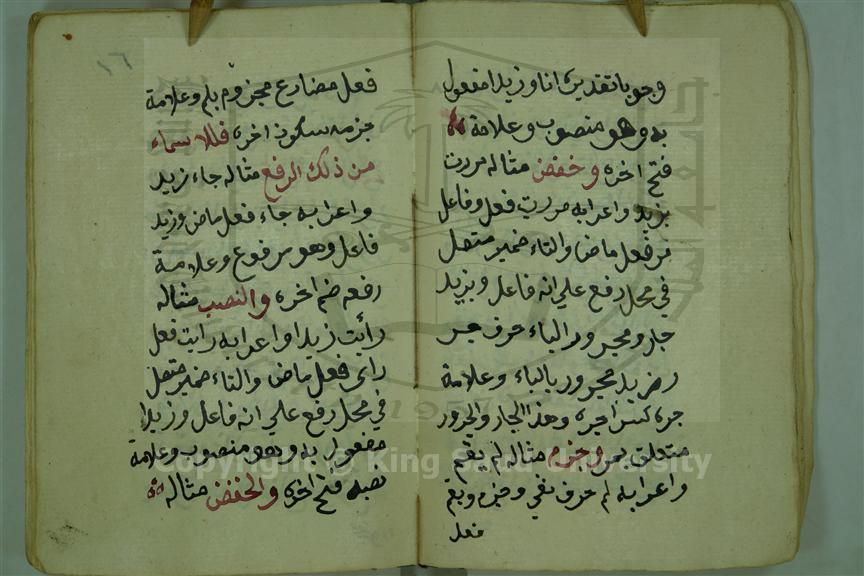 وجوبا تقديره انا وزيدا مفعول
به وهو منصوب وعلامة
فتح اخره وخفض مثاله مررت
بزيد واعرابه مررت فعل وفاعل
مر فعل ماض والتاء ضمير متصل
في محل رفع علي انه فاعل وبزيد
جار ومجرور الباء حرف جر
زيد مجرور بالباء وعلامة
جره كسر اخره وهذا الجار والمجرور
متعلق بمر وجزم مثاله لم يقم
واعرابه لم حرف نفي وجزم ويقم
فعل
١٦
فعل مضارع مجزوم بلم وعلامة
جزمه سكون اخره فللاسماء
من ذلك الرفع مثاله جاء زيد
واعرابه جاء فعل ماض وزيد
فاعل وهو مرفوع وعلامة
رفعه ضم اخره والنصب مثاله
رأيت زيدا واعرابه رايت فعل
راى فعل ماض والتاء ضمير متصل
في محل رفع علي انه فاعل وزيدا
مفعول به وهو منصوب وعلامة
نصبه فتح اخره والخفض مثاله
Copyright © King Saud University